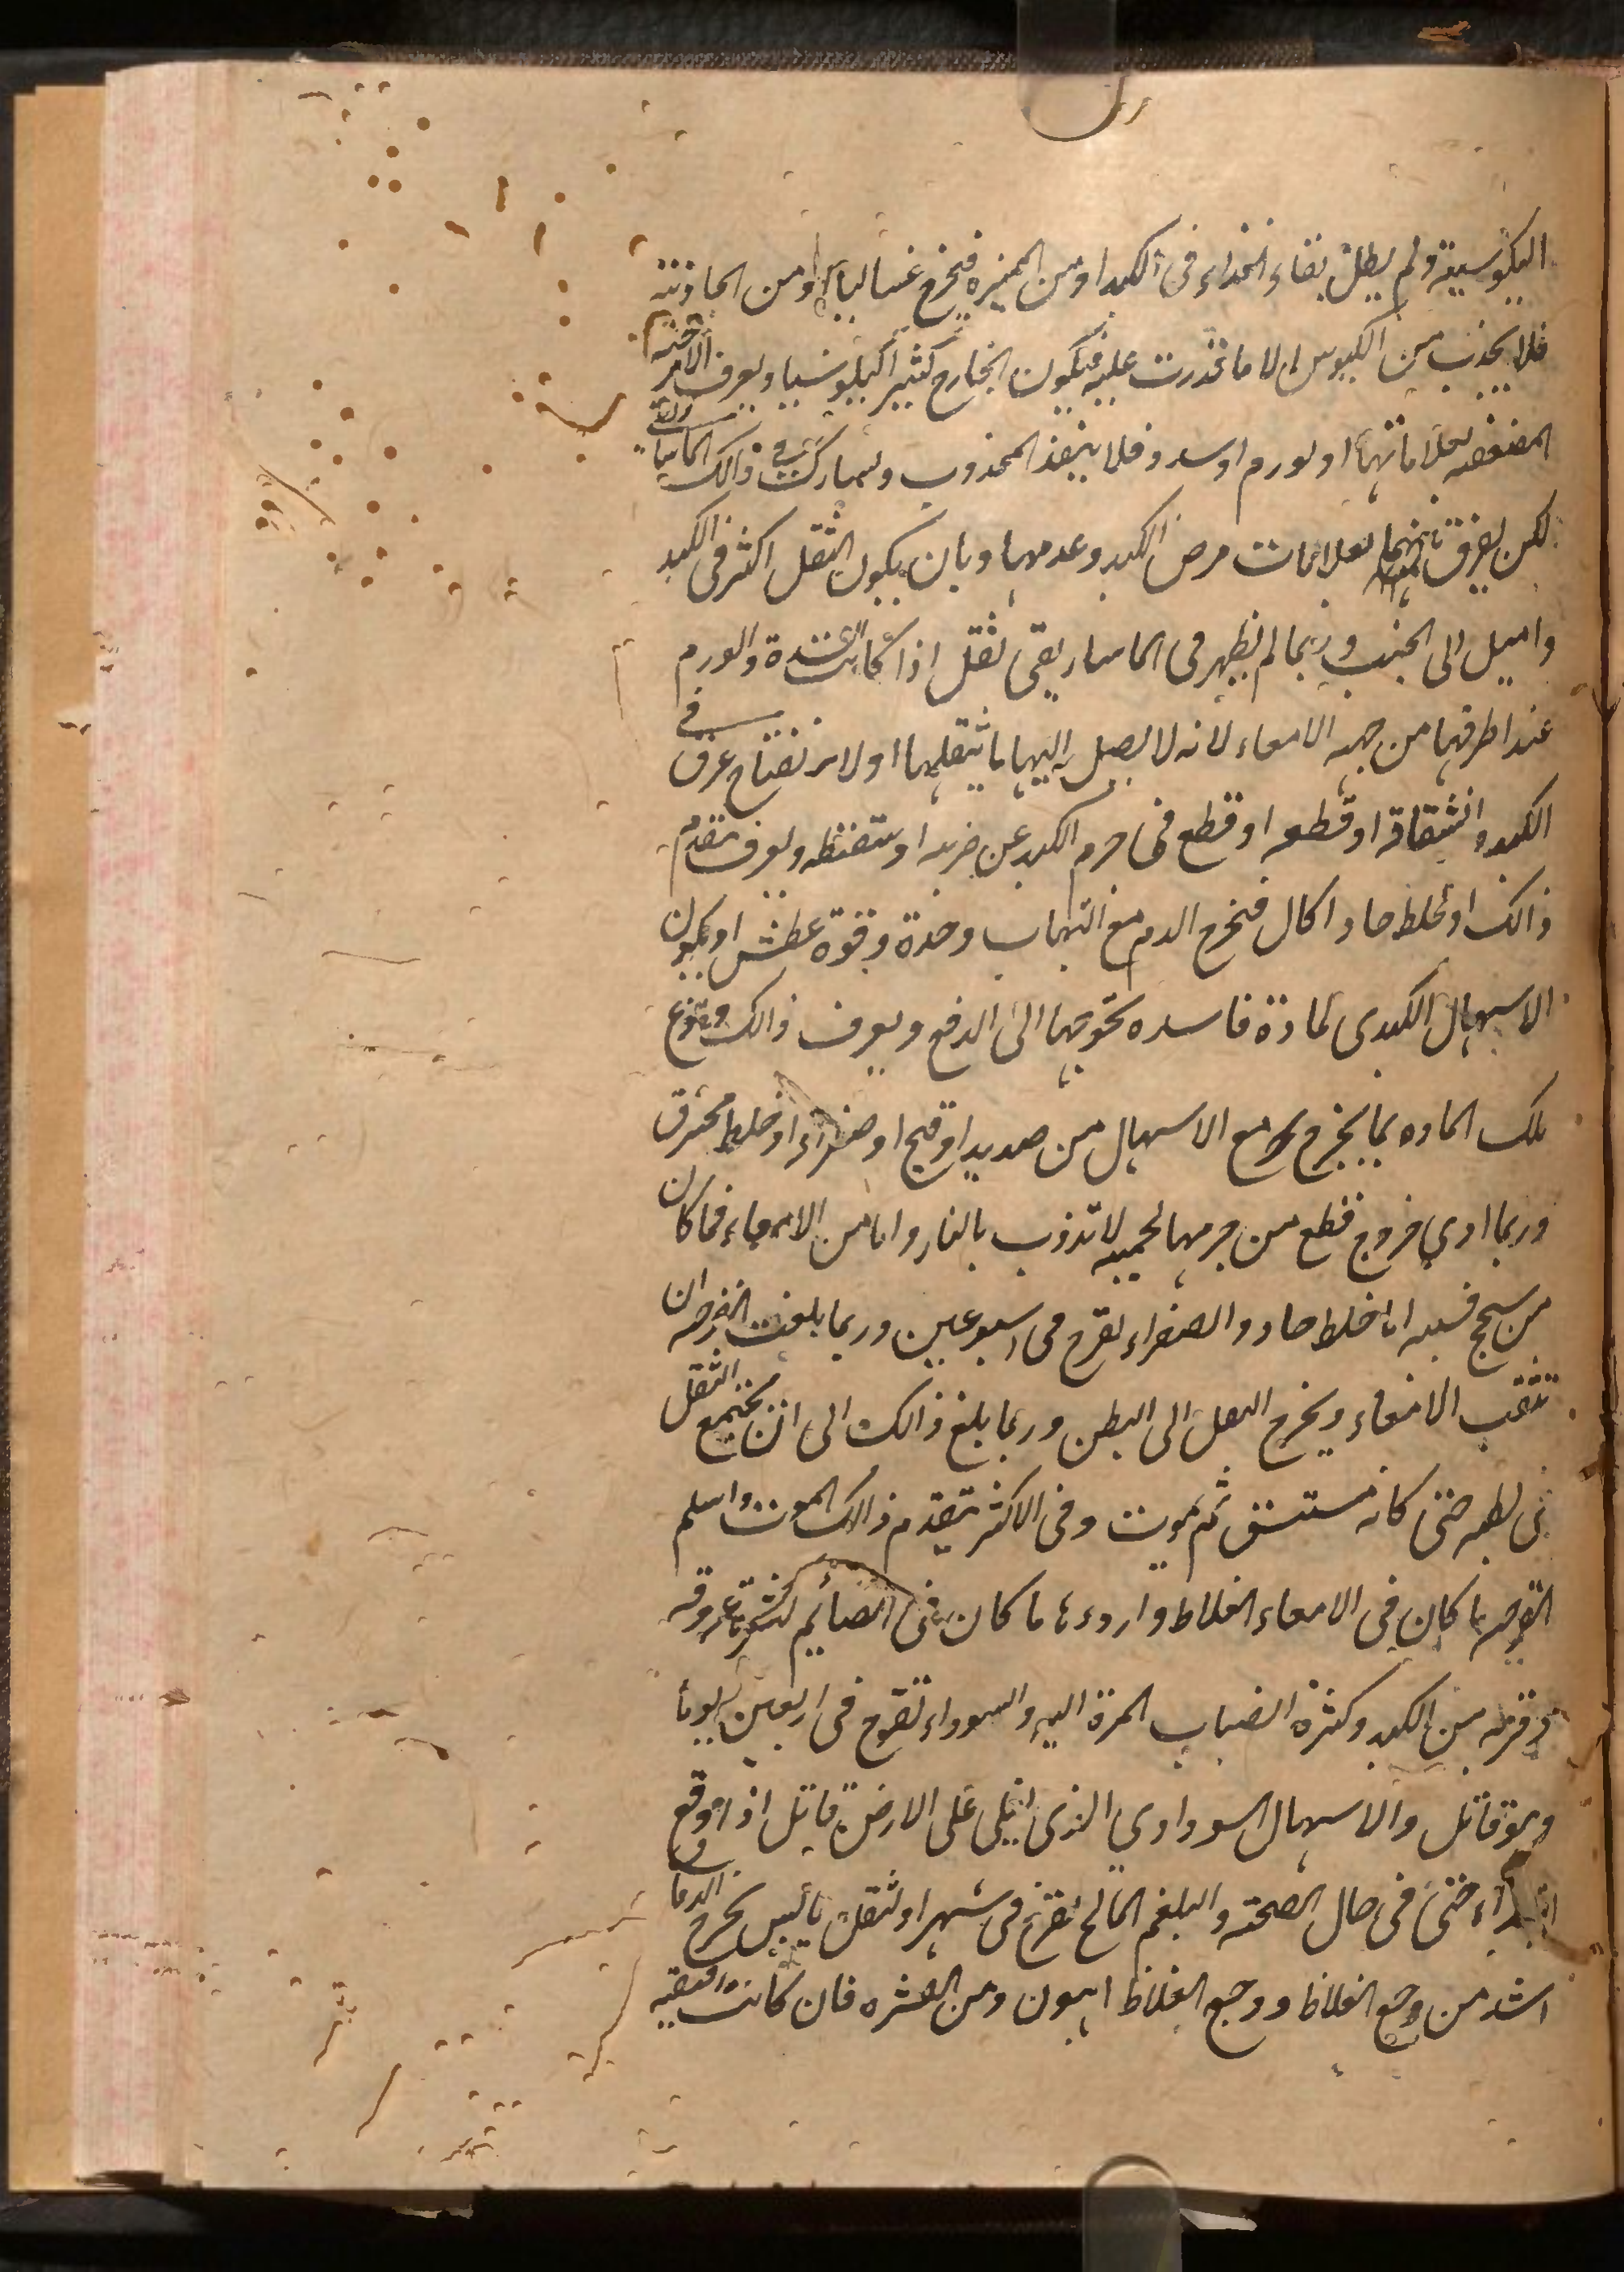 الكيلوسية ولم يطل بقاء الغذاء فى الكبد او من المميزه فيخرج غساليا او من الجاذبة
فلا يجذب من الكيلوس الا ما قدرت عليه فيكون الخارج كثيرا كيلوسيا ويعرف الامزجة
المضعفه بعلاماتها او لورم او سدد فلا ينفذ المجذوب ويشارك فى ذالك الماساريقى
لكن يفرق بينهما بعلامات مرض الكبد وعدمها وبان يكون الثقل اكثر فى الكبد
واميل الى الجنب وربما لم يظهر فى الماساريقى ثقل اذا كانت السدة والورم
عند اطرفها من جهه الامعاء لانه لا يصل اليها ما يثقلها او لانفتاح عرق فى
الكبد وانشقاقه او قطعه او قطع فى جرم الكبد عن ضربه او سقطه ويعرف بتقدم
ذالك او لخلط حاد اكال فيخرج الدم مع التهاب وحدة وقوة عطش او يكون
الاسهال الكبدى لمادة فاسده تحوجها الى الدفع ويعرف ذالك ونوع
تلك الماده بما يخرج مع الاسهال من صديد او قيح او صفراء او خلط محترق
وربما ادى خروج قطع من جرمها لحميه لا تذوب بالنار واما من الامعاء فما كان
من سحج فسببه اما خلط حاد والصفراء تقرح فى اسبوعين وربما بلغت القرحه ان
تثقب الامعاء ويخرج الثفل الى البطن وربما بلغ ذالك الى ان يجتمع الثفل
فى بطنه حتى كانه مستسق ثم يموت وفى الاكثر يتقدم ذالك الموت واسلم
القرحه ما كان فى الامعاء الغلاظ واردءها ما كان فى الصائم لكثرة عروقه
وقربه من الكبد وكثرة انصباب المرة اليه والسوداء تقرح فى اربعين يوما
وهو قاتل والاسهال السوداوى الذى يغلى على الارض قاتل اذا وقع
ابتداء حتى فى حال الصحة والبلغم المالح تقرح فى شهر او لثفل يابس يخرج
اشد من وجع الغلاظ ووجع الغلاظ اهون ومن القشره فان كانت